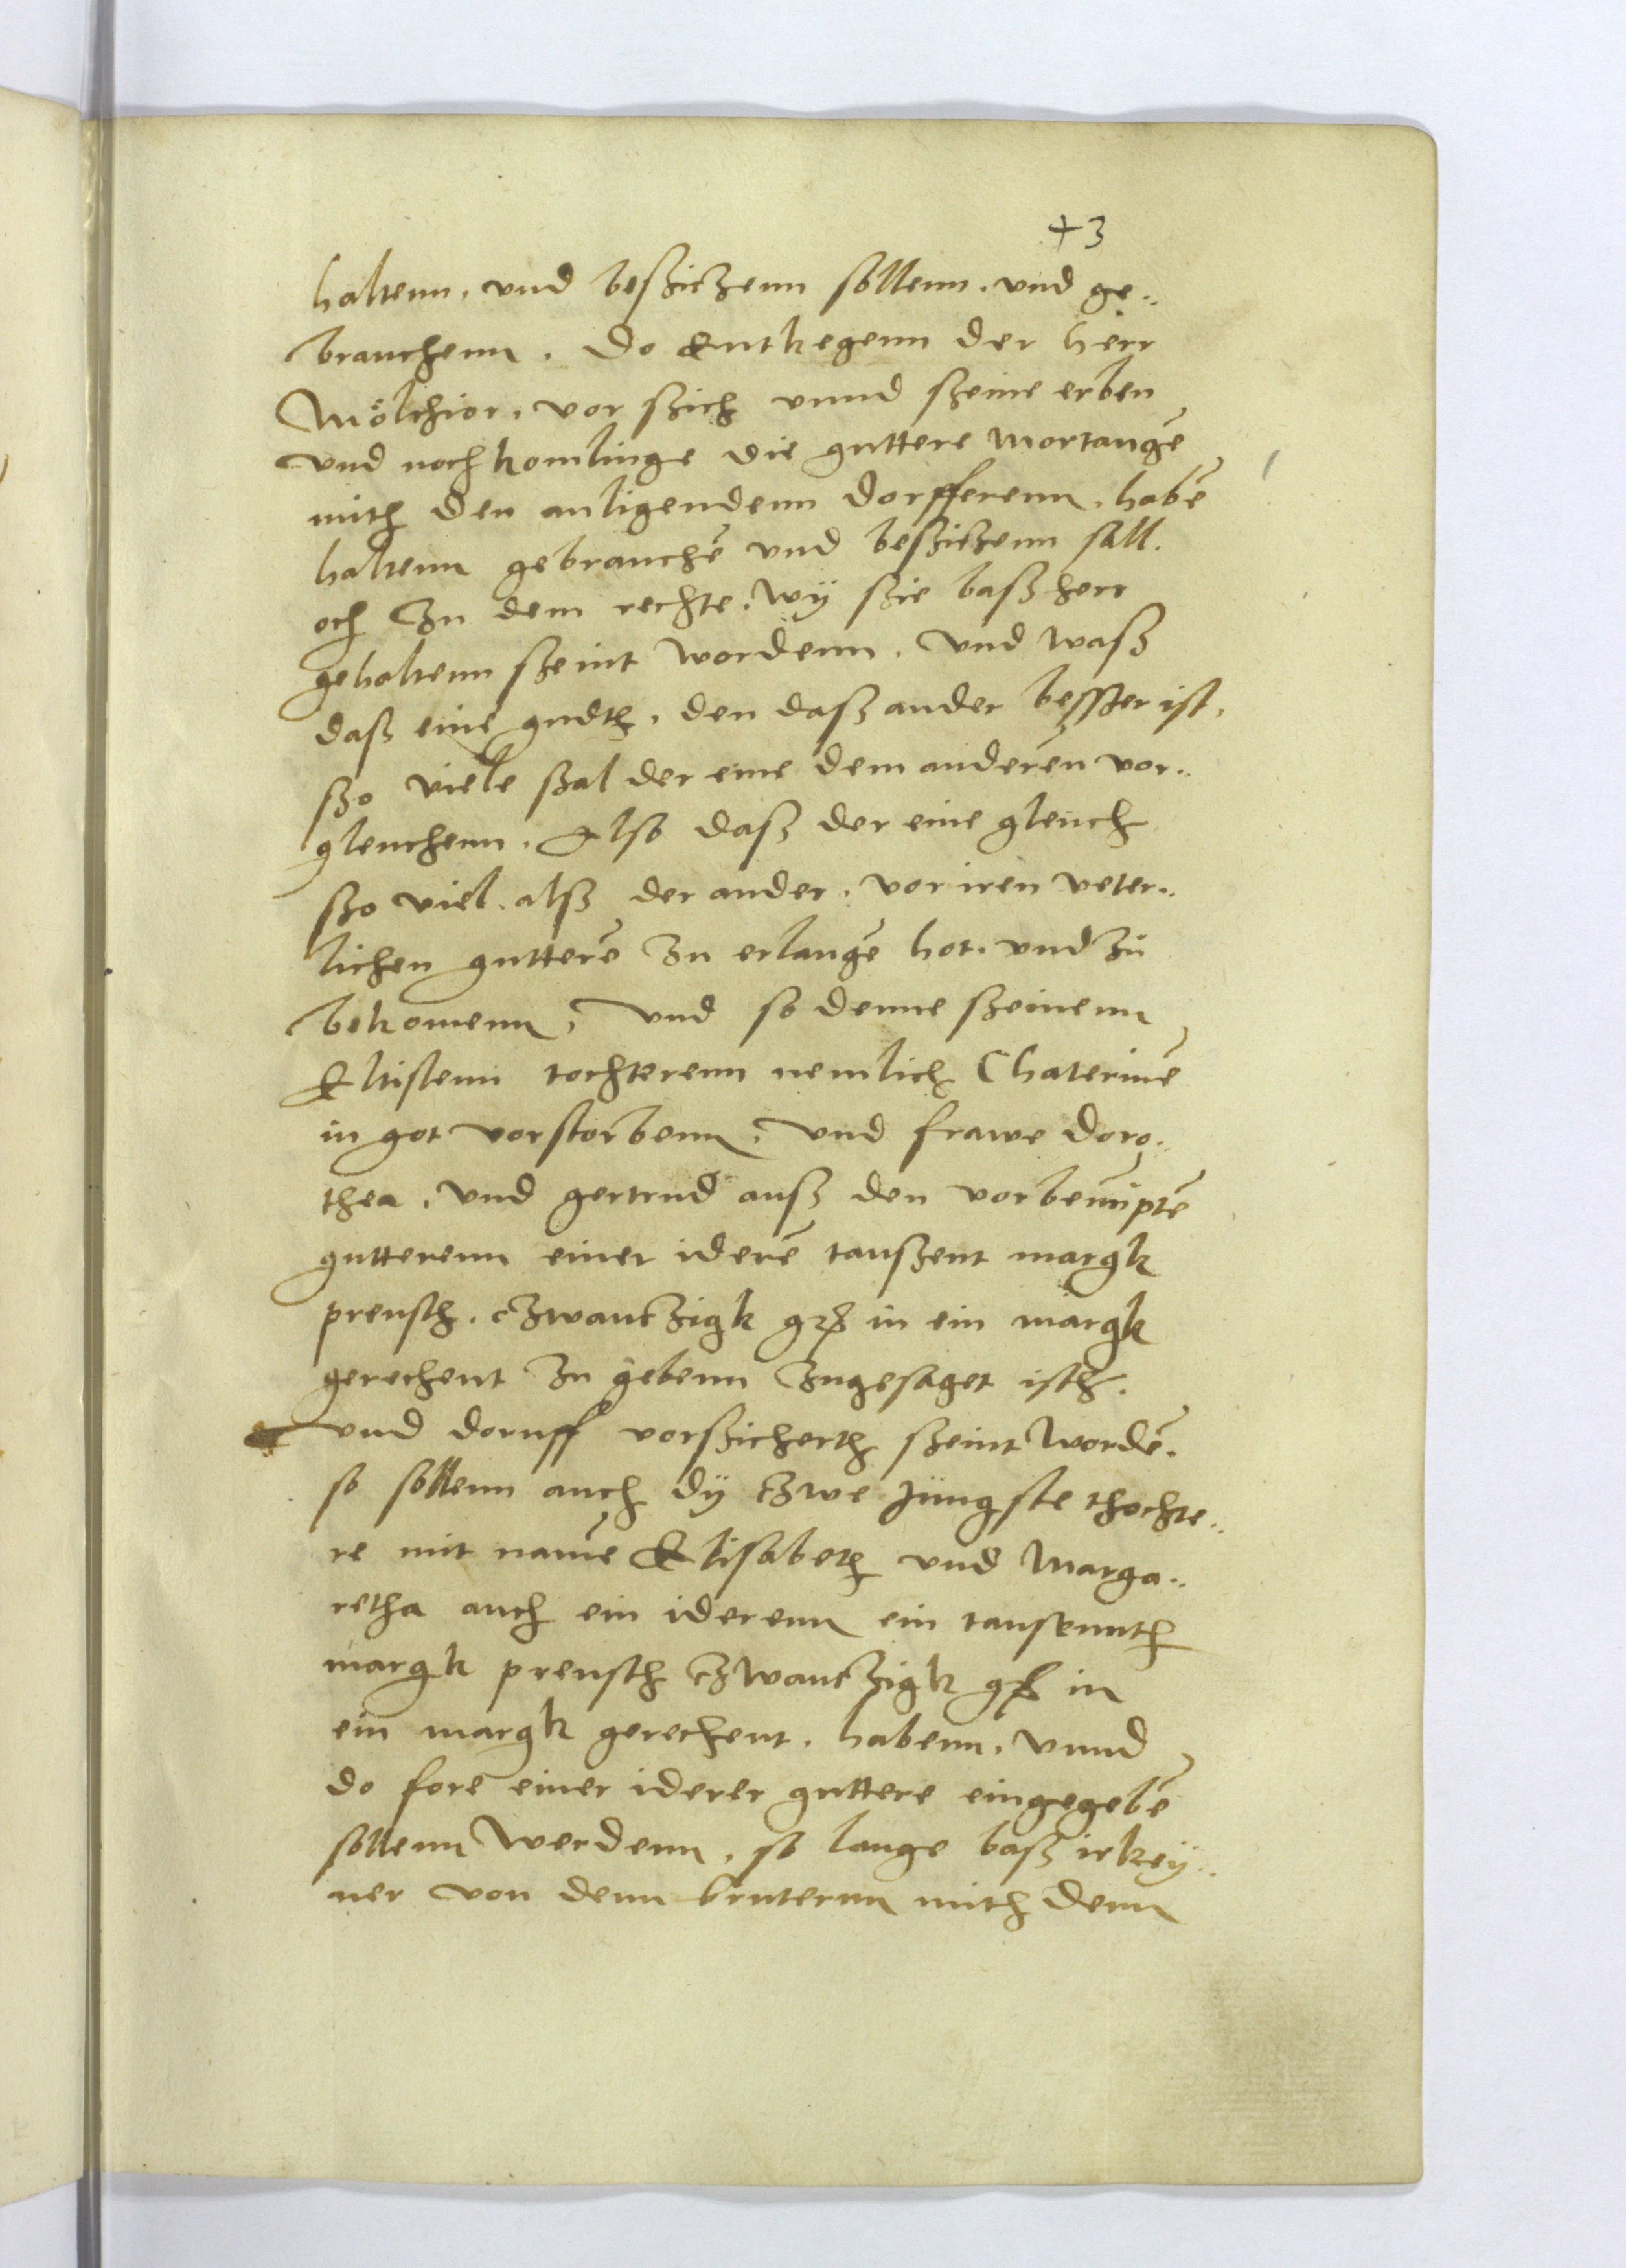 +3
haltenn, vnd beßitzenn sollenn. vnd ge„
brauchenn. Do Entkegenn der herr
Mölchior, vor ßich vnnd ßeine erben
vnd nochkomlinge die guttere Mortange
mith den anligendenn dorfferenn, habē
haltenn gebrauchē vnd beßitzenn sall.
och zu dem rechte, wÿ ßie baß herr
gehaltenn ßeint wordenn. Vnd waß
daß eine gudth, den daß ander besser ist,
ßo viele ßal der eine dem anderen vor„
gleuchenn, Also daß der eine gleuch
ßo viel, alß der ander, vor iren veter„
lichen gutterē zu erlangē hot, vnd zu
bekomenn, Vnd so denne ßeinenn
Eltistenn tochterenn nemlich Chaterinē
in got vorstorbenn, vnd frawe doro„
thea, vnd gertrud auß den vorbenūptē
gutterenn einer iderē taußent margk
preusch, tzwantzigk gß in ein margk
gerechent zu gebenn zugesaget isth.
vnd doruff vorßicherth ßeint wordē.
so sollenn auch dÿ tzwe Jungste thochte„
re mit namē Elisabeth vnd Marga„
retha auch ein iderenn ein tausenntth
margk preusch tzwantzigk gß in
ein margk gerechent, habenn, vnnd
do fore einer iderer guttere eingegebē
sollenn werdenn, so lange baß irkeÿ„
ner von denn bruternn mith denn